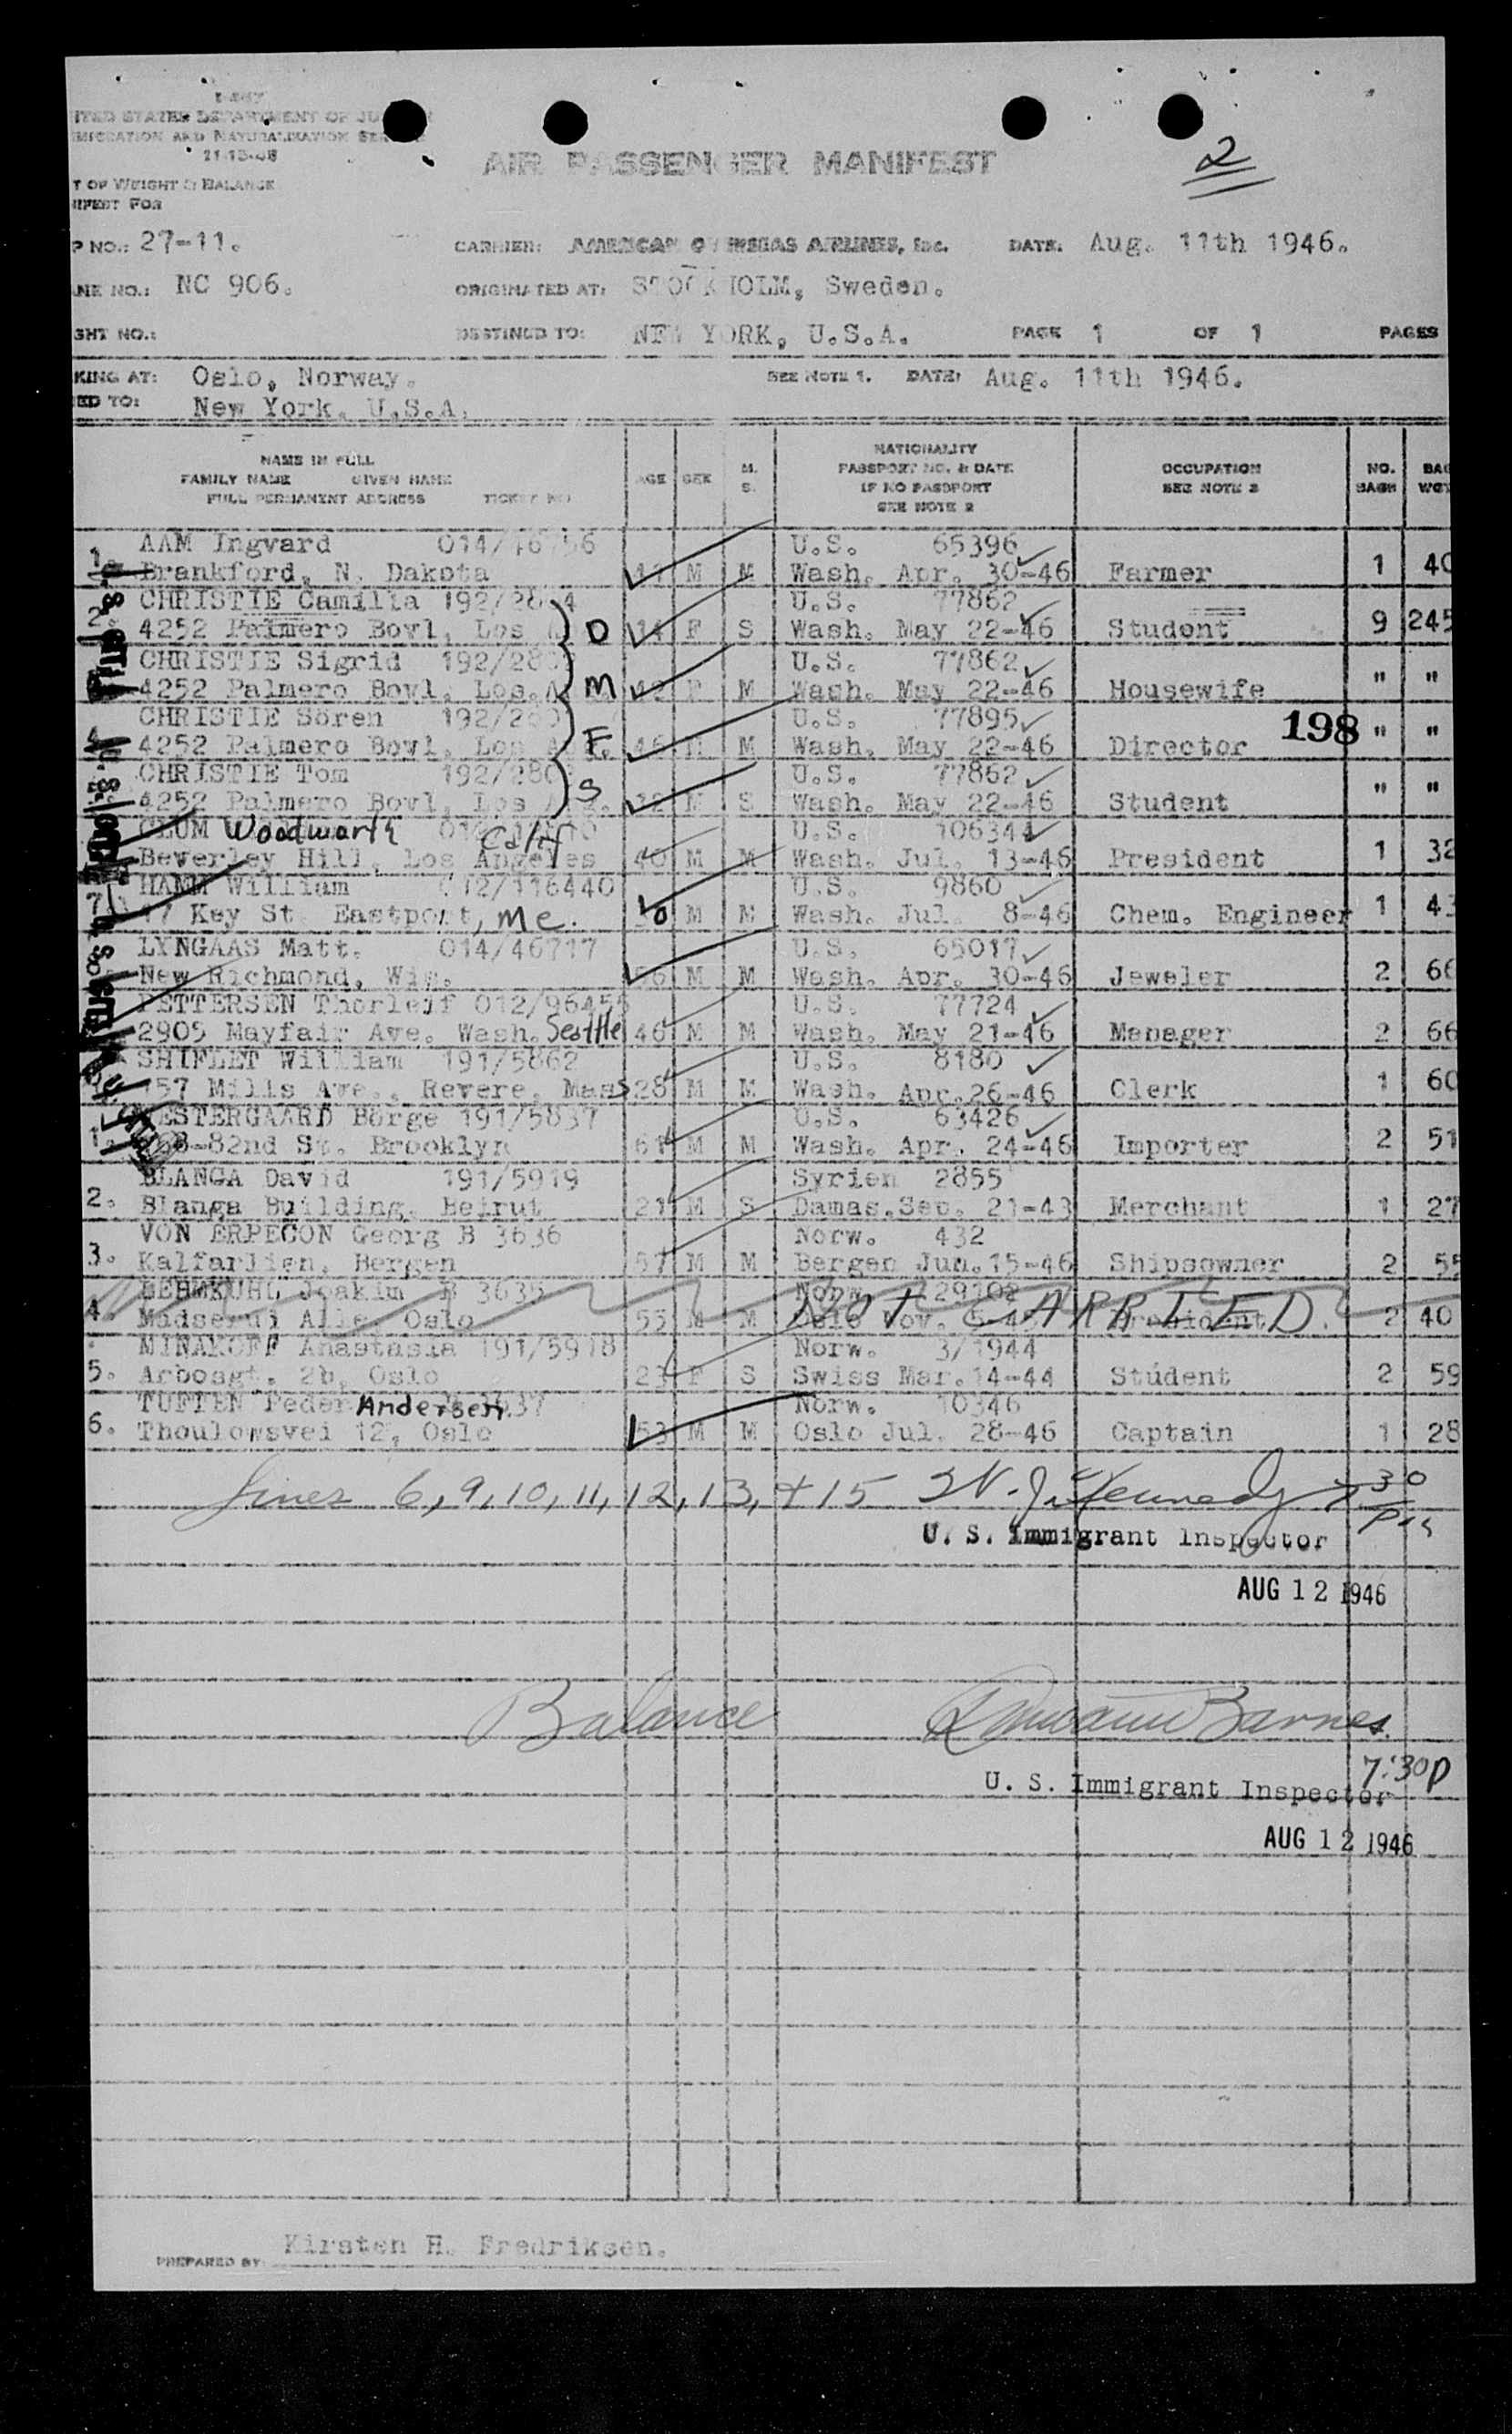 I-467
ITED STATES DEPARTMENT OF JU
MIGRATION AND NATURALIZATION SER
11-15-45
AIR PASSENGER MANIFEST
2
T OF WEIGHT & BALANCE
NIFEST FOR
P NO.: 27-11. CARRIER: AMERICAN OVERSEAS AIRLINES, Inc. DATE: Aug. 11th 1946.
ANE NO.: NC 906. ORIGINATED AT: STOCKHOLM, Sweden.
GHT NO.: DESTINED TO: NEW YORK, U.S.A. PAGE 1 OF 1 PAGES
KING AT: Oslo, Norway. SEE NOTE 1. DATE: Aug. 11th 1946.
ED TO: New York, U.S.A.
NAME IN FULL
FAMILY NAME GIVEN NAME
FULL PERMANENT ADDRESS TICKET NO
AGE SEX M. S.
NATIONALITY
PASSPORT NO. & DATE
IF NO PASSPORT
SEE NOTE 2
OCCUPATION
SEE NOTE 3
NO. BAGS
BAG WGT
AAM Ingvard 014/46756 U.S. 65396
1. Brankford, N. Dakota M M Wash. Apr. 30-46 Farmer 1 40
CHRISTIE Camilla U.S. 77862
2. 4252 Palmero Bovl, Los D 14 F S Wash. May 22-46 Student 9 245
CHRISTIE Sigrid U.S. 77862
4252 Palmero Bovl, Los. A M F M Wash. May 22-46 Housewife " "
CHRISTIE Sören U.S. 77895
4. 4252 Palmero Bovl, Los A F. 46 M M Wash. May 22-46 Director 198 " "
CHRISTIE Tom U.S. 77862
4252 Palmero Bovl, Los S 12 M S Wash. May 22-46 Student " "
CLUM Woodwarth Calif U.S. 106344
Beverley Hill, Los Angeles 40 M M Wash. Jul. 13-46 President 1 32
HAMM William 012/116440 U.S. 9860
7 17 Key St. Eastport, Me. M M Wash. Jul. 8-46 Chem. Engineer 1 43
LYNGAAS Matt. 014/46717 U.S. 65017
8 New Richmond, Wis. 56 M M Wash. Apr. 30-46 Jeweler 2 66
PETTERSEN Thorleif 012/96455 U.S. 77724
2905 Mayfair Ave. Wash. Seattle 46 M M Wash. May 21-46 Manager 2 66
SHIFLET William 191/5862 U.S. 8180
157 Mills Ave., Revere, Mass 28 M M Wash. Apr. 26-46 Clerk 1 60
VESTERGAARD Börge 191/5837 U.S. 63426
1. 68-82nd St. Brooklyn 61 M M Wash. Apr. 24-46 Importer 2 51
BLANGA David 191/5919 Syrien 2855
2. Blanga Building, Beirut 21 M S Damas. Sep. 21-43 Merchant 1 27
VON ERPECON Georg B 3636 Norw. 432
3. Kalfarlien, Bergen 57 M M Bergen Jun. 15-46 Shipsowner 2 55
LEHMKUHL Joakim B 3635 Norw. 29102
4. Madserud Alle, Oslo 55 M M Oslo Nov. President 2 40
NOT CARRIED.
MINAKOFF Anastasia 191/5918 Norw. 3/1944
5. Arbosgt. 2b, Oslo 23 F S Swiss Mar. 14-44 Student 2 59
TUFTEN Peder Andersen. 3637 Norw. 10346
6. Thoulowsvei 12, Oslo 53 M M Oslo Jul. 28-46 Captain 1 28
Lines 6, 9, 10, 11, 12, 13, + 15 J. Kennedy 7 30
U. S. Immigrant Inspector
AUG 12 1946
Balance Barnes.
7:30p
U. S. Immigrant Inspector
AUG 12 1946
PREPARED BY: Kirsten H. Fredriksen.